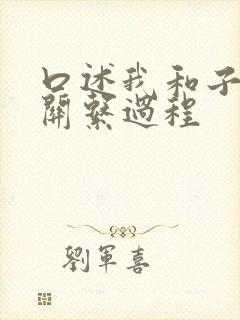 口述我和子
關繫過程
劉軍喜